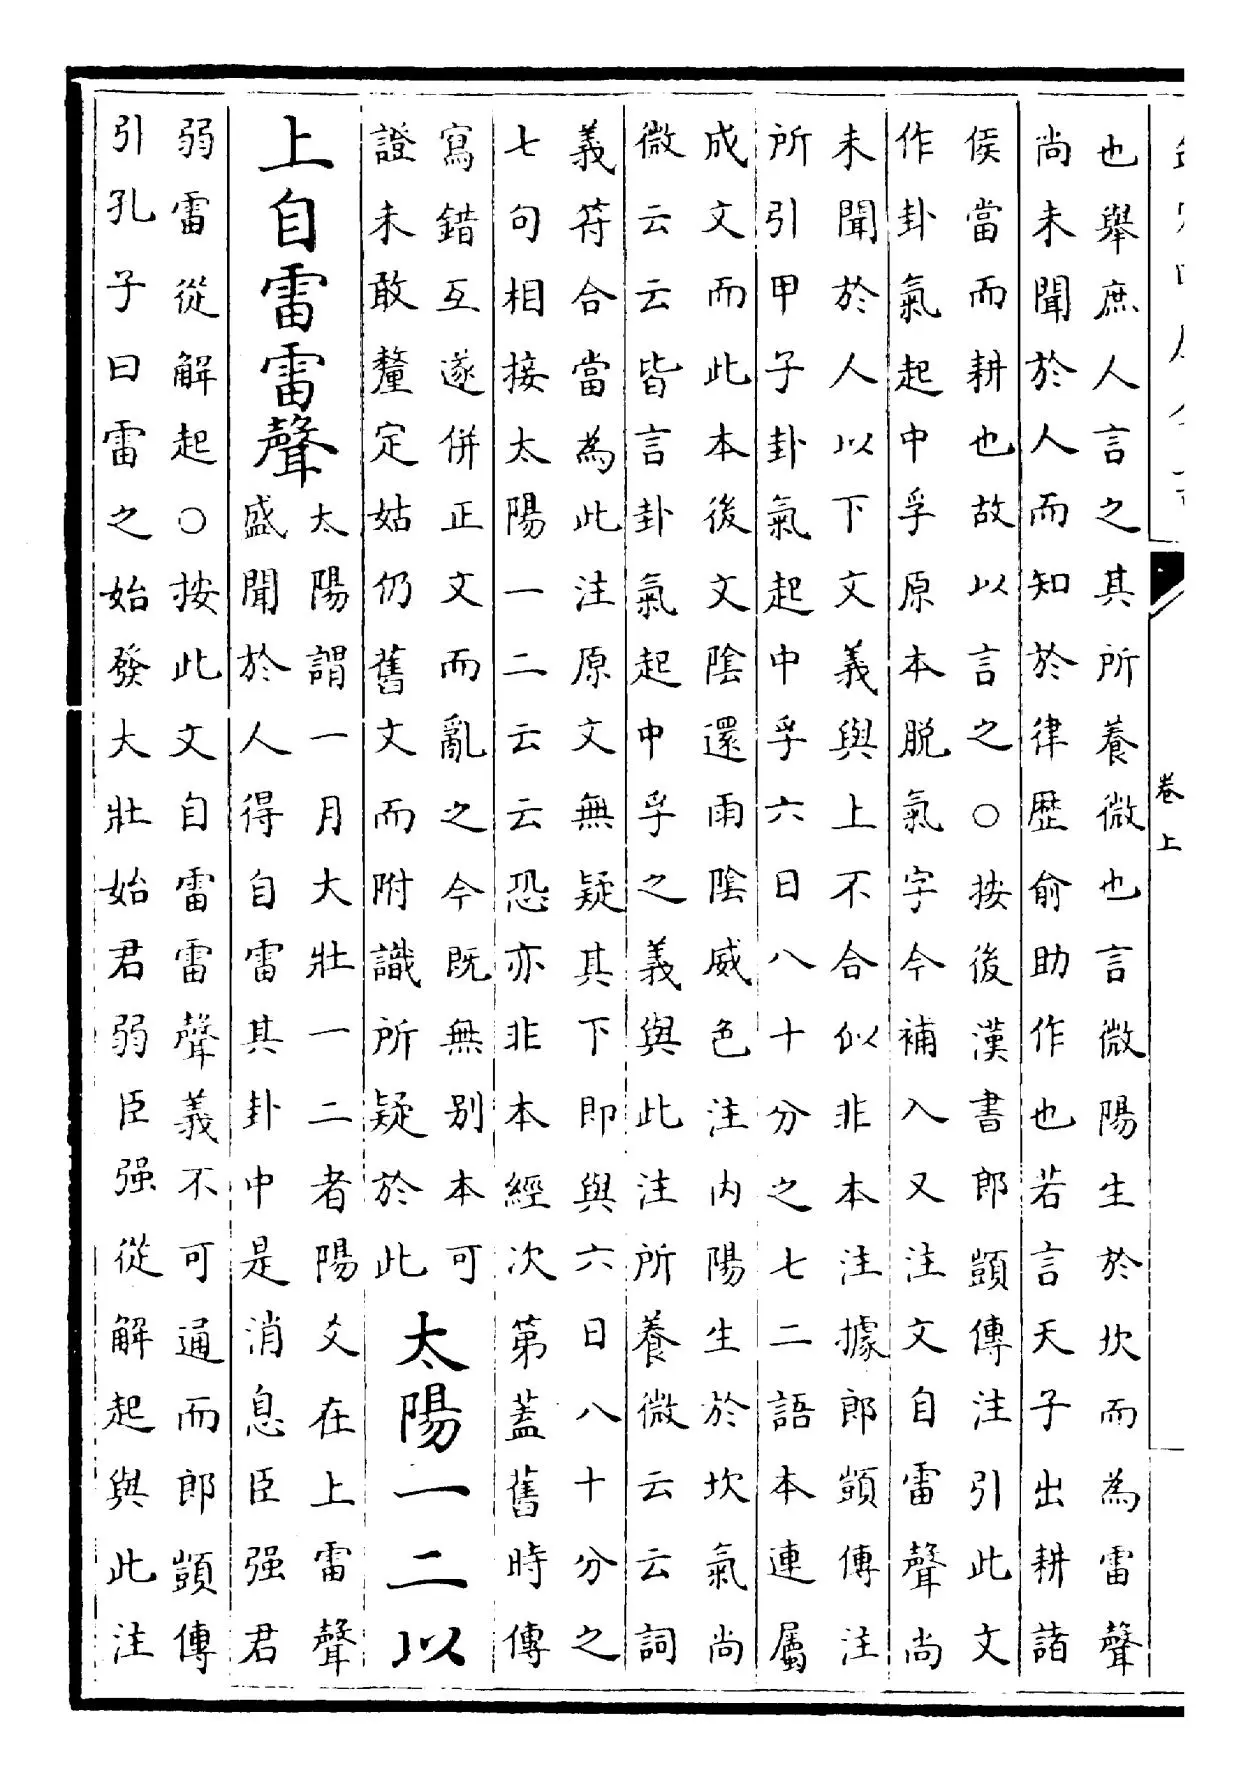 卷上
也舉庶人言之其所養微也言微陽生於坎而為雷聲
尚未聞於人而知於律歷俞助作也若言天子出耕諸
侯當而耕也故以言之○按後漢書郎顗傳注引此文
作卦氣起中孚原本脫氣字今補入又注文自雷聲尚
未聞於人以下文義與上不合似非本注據郎顗傳注
所引甲子卦氣起中孚六日八十分之七二語本連屬
成文而此本後文陰還雨陰威色注内陽生於坎氣尚
微云云皆言卦氣起中孚之義與此注所養微云云詞
義符合當為此注原文無疑其下即與六日八十分之
七句相接太陽一二云云恐亦非本經次第蓋舊時傳
寫錯互遂併正文而亂之今既無别本可
證未敢釐定姑仍舊文而附識所疑於此
太陽一二以
上自雷雷聲
太陽謂一月大壯一二者陽爻在上雷聲
盛聞於人得自雷其卦中是消息臣强君
弱雷從解起○按此文自雷雷聲義不可通而郎顗傳
引孔子曰雷之始發大壯始君弱臣强從解起與此注